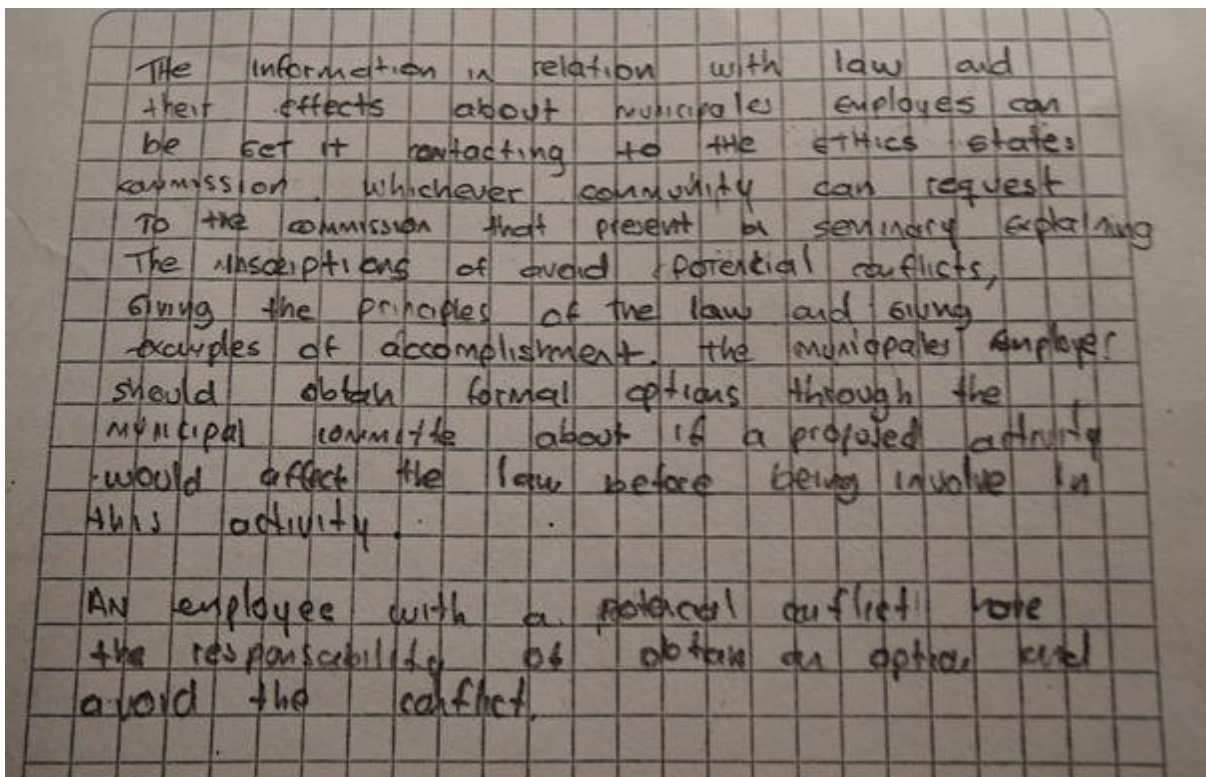 THe information in relation with law and
their effects about municipales employes can
be get it contacting to the ETHics states
commission. Whichever community can request
To the commission that present a seminary explaining
The inscriptions of avoid potencial conflicts,
Giving the principles of the law and Giving
examples of accomplishment. the municipales employer
should obtain formal options through the
municipal committe about if a proposed activity
would affect the law before being involve in
this activity.
AN employee with a potencial conflict have
the responsability of obtain an option and
avoid the conflict.